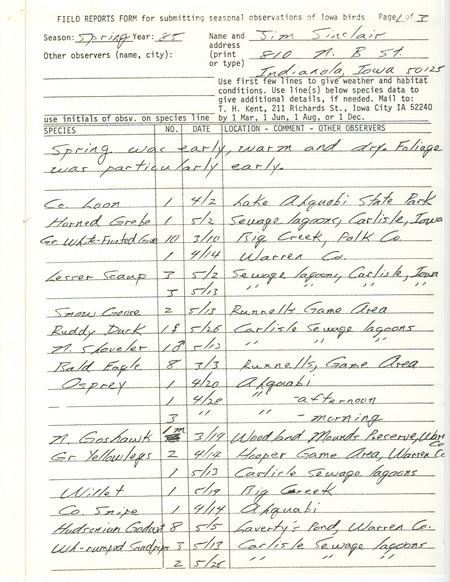 FIELD REPORTS FORM for submitting seasonal observations of Iowa birds Page 1 of
Season: Spring Year: 85 Name and Jim Sinclair
address
Other observers (name, city): (print 810 N. B St.
or type) Indianola, Iowa 50125
Use first few lines to give weather and habitat
conditions. Use line(s) below species data to
give additional details, if needed. Mail to:
T. H. Kent, 211 Richards St., Iowa City IA 52240
use initials of obsv. on species line by 1 Mar, 1 Jun, 1 Aug, or 1 Dec.
SPECIES NO. DATE LOCATION - COMMENT - OTHER OBSERVERS
Spring was early, warm and dry. Foliage
was particularly early.
Co. Loon 1 4/2 Lake Ahquabi State Park
Horned Grebe 1 5/2 Sewage lagoons, Carlisle, Iowa
Gr. White-Fronted Goose 10 3/10 Big Creek, Polk Co.
1 4/14 Warren Co.
Lesser Scaup 3 5/2 Sewage lagoons, Carlisle, Iowa
3 5/13 " " " "
Snow Goose 2 5/13 Runnells Game Area
Ruddy Duck 1 5/26 Carlisle Sewage lagoons
N. Shoveler 1♂ 5/13 " " "
Bald Eagle 8 3/3 Runnells, Game Area
Osprey 1 4/20 Ahquabi
1 4/28 " - afternoon
3 " - morning
N. Goshawk 1m 3/19 Woodland Mounds Preserve, Warren Co
Gr. Yellowlegs 2 4/14 Hooper Game Area, Warren Co.
1 5/13 Carlisle Sewage lagoons
Willet 1 5/19 Big Creek
Co. Snipe 1 4/14 Ahquabi
Hudsonian Godwit 8 5/5 Laverty's Pond, Warren Co.
Wh-rumped Sandpiper 3 5/13 Carlisle Sewage lagoons
2 5/26 " " "